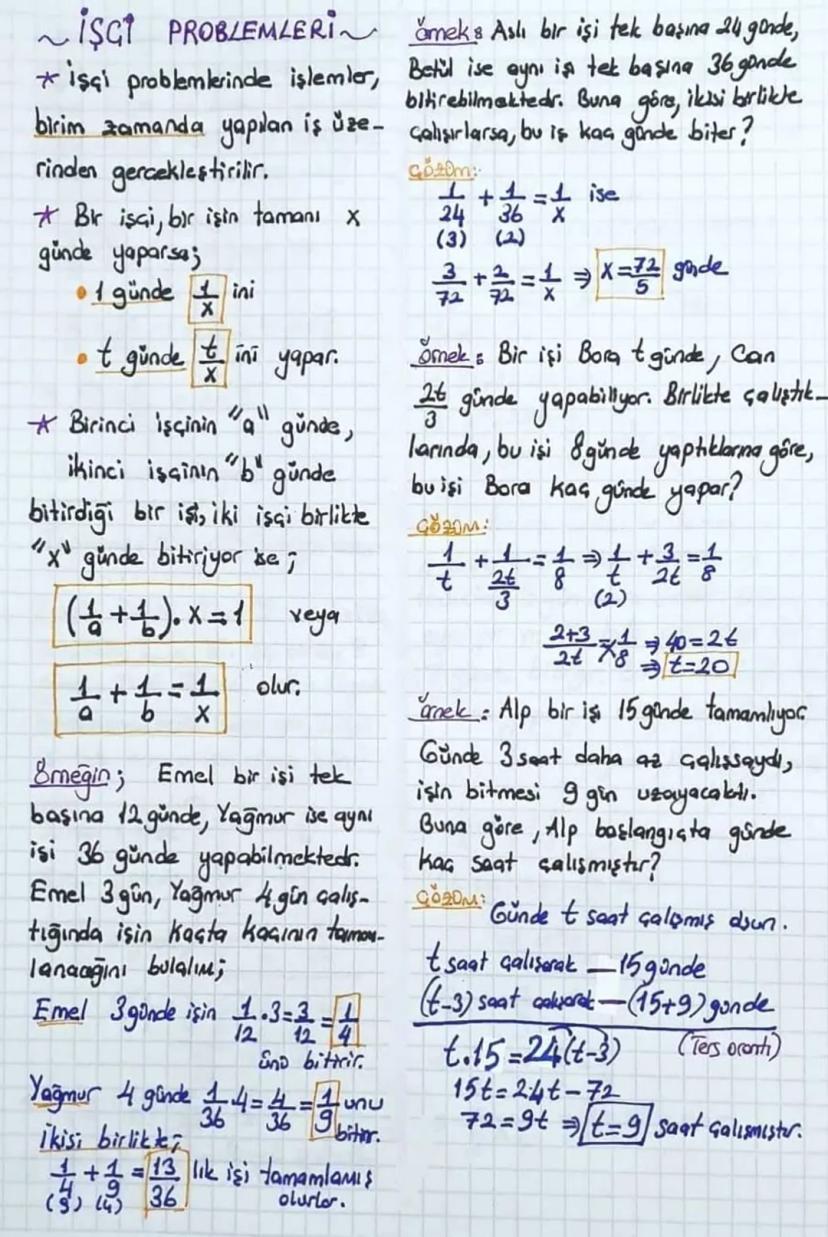 ~ İŞÇİ PROBLEMLERİ ~
* İşçi problemlerinde işlemler,
birim zamanda yapılan iş üze-
rinden gerçekleştirilir.
* Bir işçi, bir işin tamanı x
günde yaparsa;
• 1 günde 1/x ini
• t günde t/x ini yapar.
* Birinci işçinin "a" günde,
ikinci işçinin "b" günde
bitirdiği bir işi, iki işçi birlikte
"x" günde bitiriyor ise;
(1/a + 1/b) . x = 1 veya
1/a + 1/b = 1/x olur.
Örneğin; Emel bir işi tek
başına 12 günde, Yağmur ise aynı
işi 36 günde yapabilmektedr.
Emel 3 gün, Yağmur 4 gün çalış-
tığında işin kaçta kaçının tamam-
lanacağını bulalım;
Emel 3 günde işin 1/12 . 3 = 3/12 = 1/4
ünü bitirir.
Yağmur 4 günde 1/36 . 4 = 4/36 = 1/9 unu
bitirir.
İkisi birlikte;
1/4 + 1/9 = 13/36 lık işi tamamlamış
(9) (4) olurlar.
Örnek: Aslı bir işi tek başına 24 günde,
Betül ise aynı işi tek başına 36 günde
bitirebilmektedr. Buna göre, ikisi birlikte
çalışırlarsa, bu iş kaç günde biter?
Çözüm:
1/24 + 1/36 = 1/x ise
(3) (2)
3/72 + 2/72 = 1/x ⇒ x = 72/5 günde
Örnek: Bir işi Bora t günde, Can
2t/3 günde yapabiliyor. Birlikte çalıştık-
larında, bu işi 8 günde yaptıklarına göre,
bu işi Bora kaç günde yapar?
Çözüm:
1/t + 1/(2t/3) = 1/8 ⇒ 1/t + 3/2t = 1/8
(2)
2+3/2t = 1/8 ⇒ 40 = 2t
⇒ t = 20
Örnek: Alp bir işi 15 günde tamamlıyor.
Günde 3 saat daha az çalışsaydı,
işin bitmesi 9 gün uzayacaktı.
Buna göre, Alp başlangıçta günde
kaç saat çalışmıştır?
Çözüm:
Günde t saat çalışmış olsun.
t saat çalışarak — 15 günde
(t-3) saat çalışarak — (15+9) günde
t.15 = 24(t-3) (Ters orantı)
15t = 24t - 72
72 = 9t ⇒ t = 9 saat çalışmıştır.